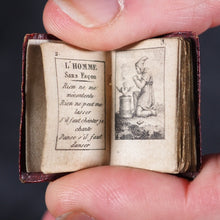 2
3
L'HOMME
Sans Façon
Rien ne me
mécontente
Rien ne peut me
lasser
S'il faut chanter je
chante
Danse s'il faut
danser